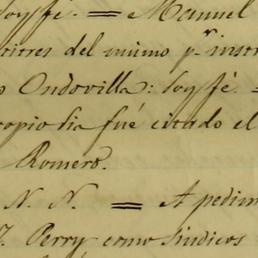 soy fé. = Manuel
del mismo pr. instr
Ondovilla: soy fé =
copio lia fué citado el
Romero.
N. N. = A pedim
J. Perry como Sindicos